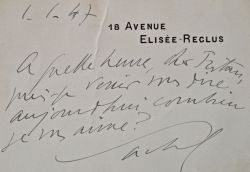 1.1.47
18 AVENUE
ELISÉE-RECLUS
A quelle heure, cher Tristan,
puis-je venir vous dire
aujourd'hui combien
je vous aime?